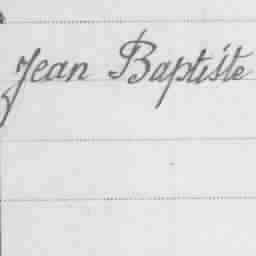 Jean Baptiste